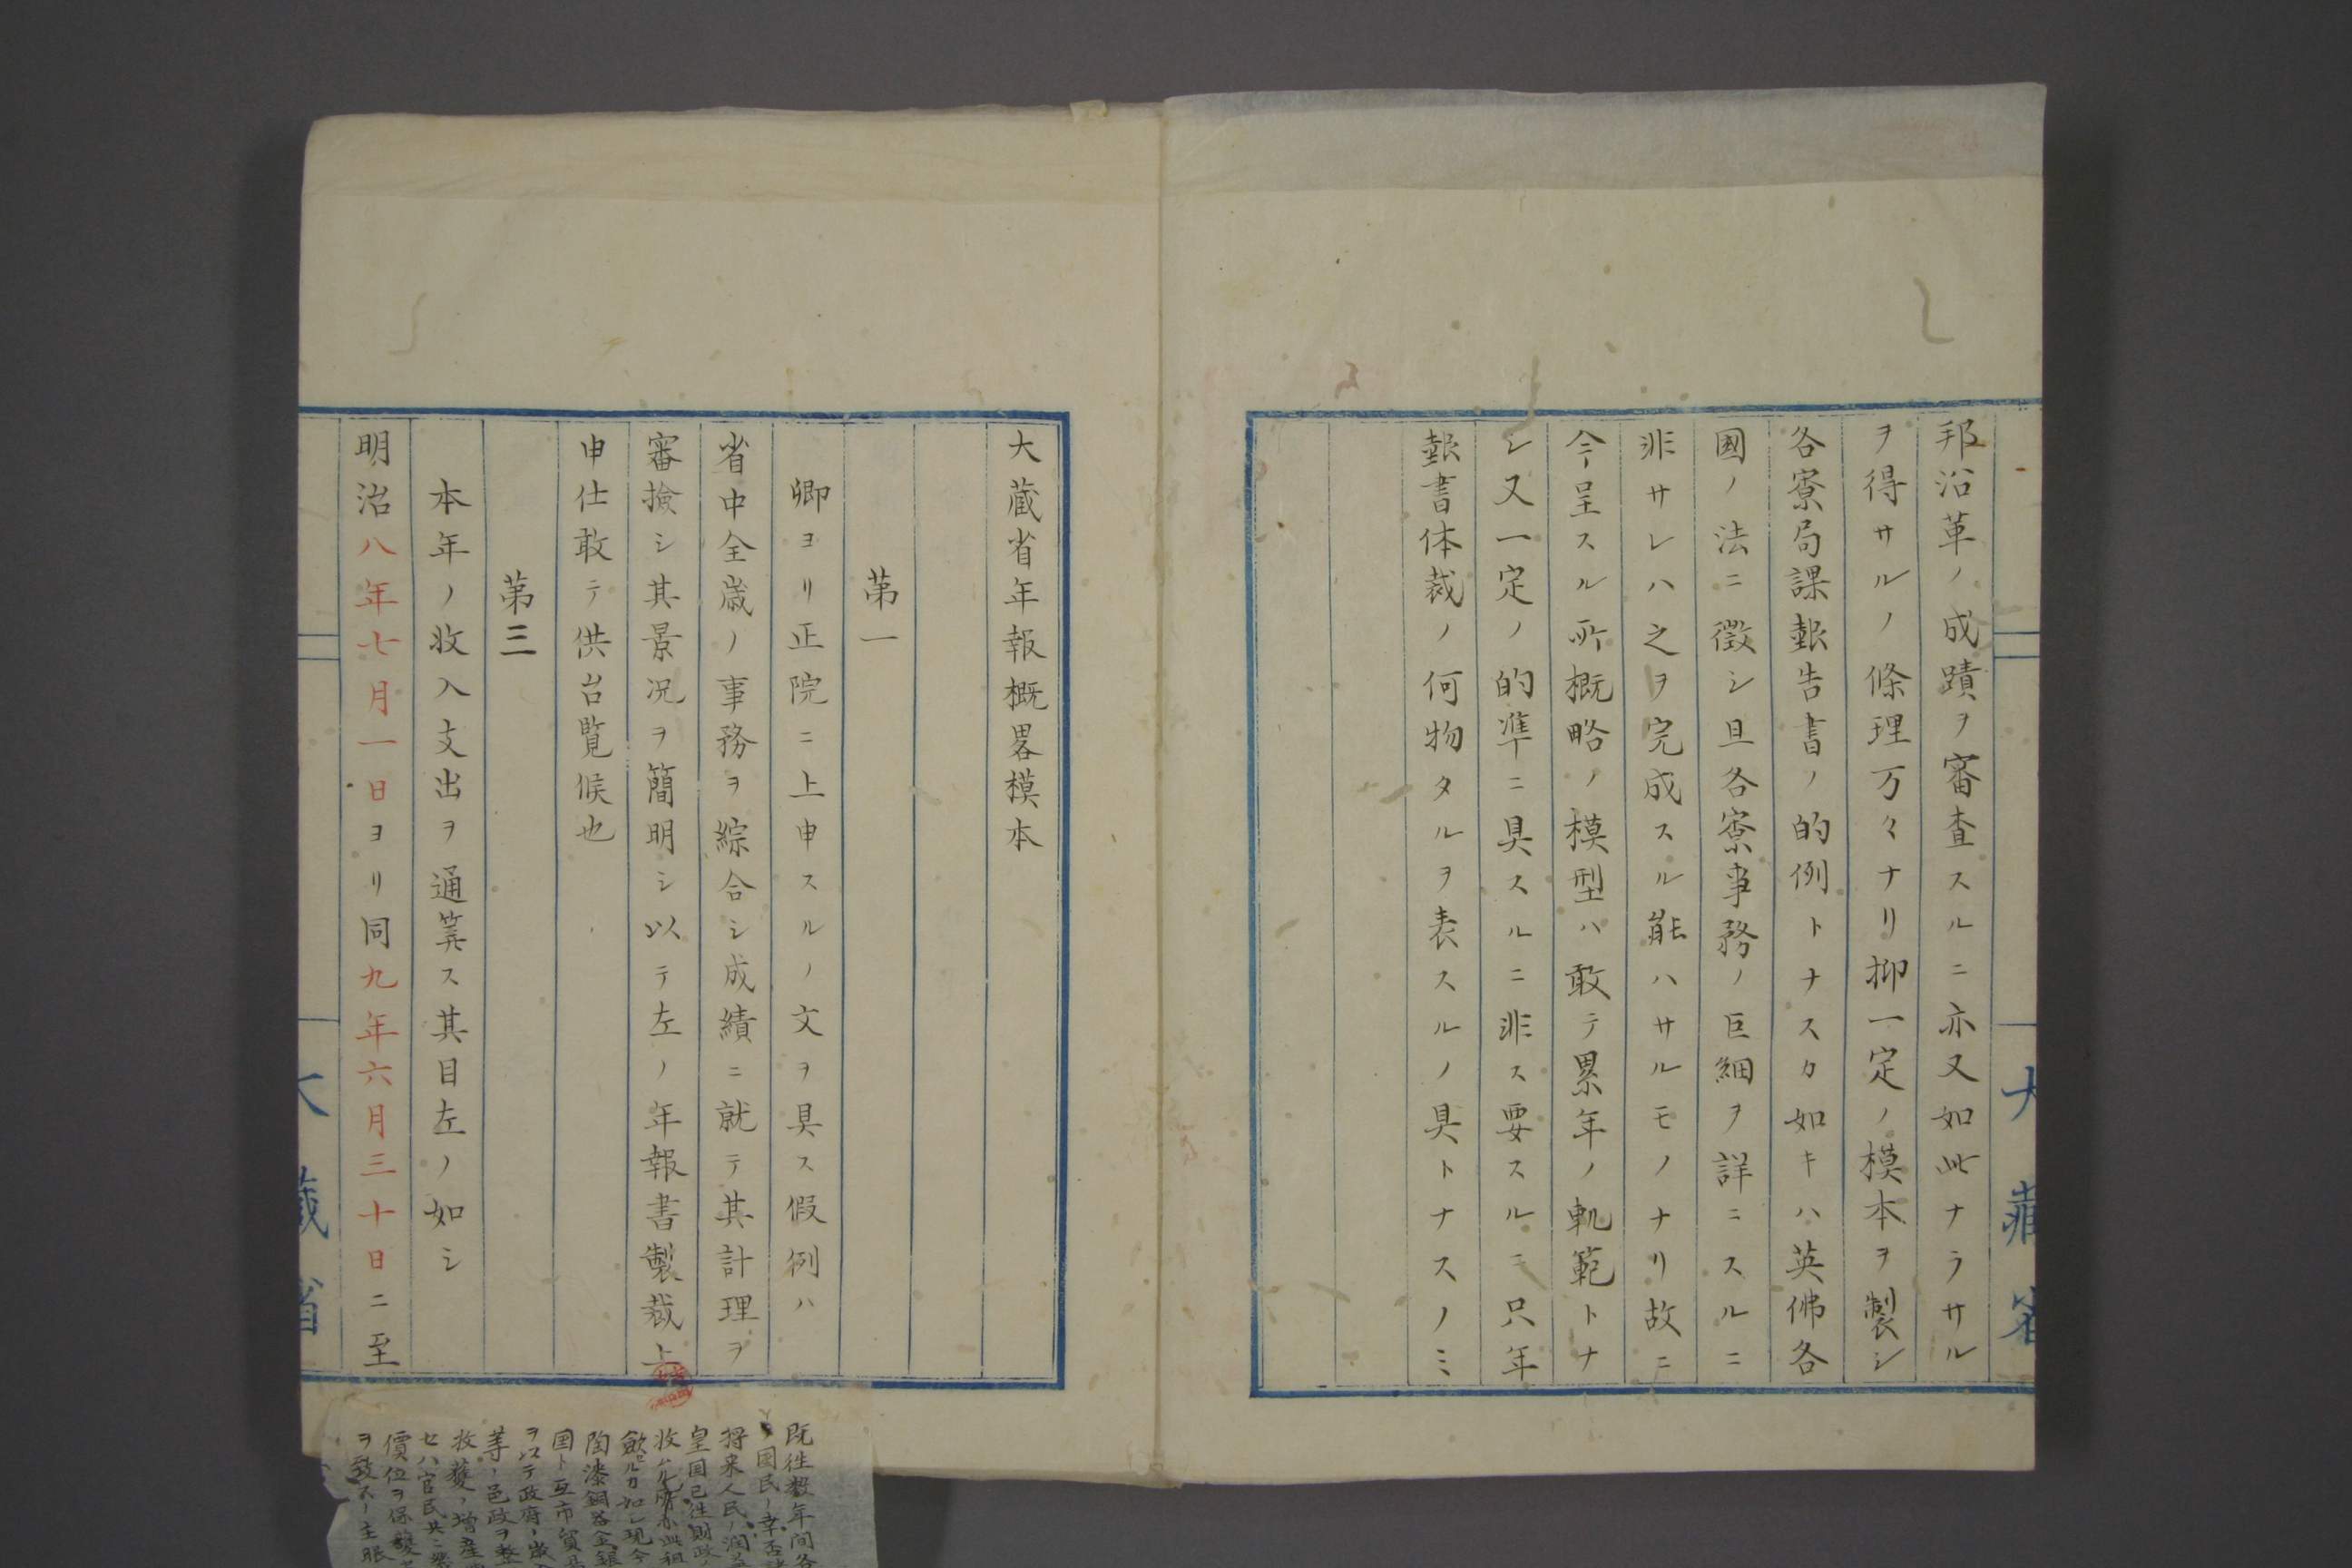 邦沿革ノ成蹟ヲ審査スルニ亦又如此ナラサル
ヲ得サルノ條理万々ナリ抑一定ノ模本ヲ製シ
各寮局課報告書ノ的例トナスカ如キハ英佛各
國ノ法ニ徴シ且各寮事務ノ巨細ヲ詳ニスルニ
非サレハ之ヲ完成スル能ハサルモノナリ故ニ
今呈スル所概略ノ模型ハ敢テ累年ノ軌範トナ
シ又一定ノ的準ニ具スルニ非ス要スルニ只年
報書体裁ノ何物タルヲ表スルノ具トナスノミ
大藏省
大藏省年報概畧模本
第一
卿ヨリ正院ニ上申スルノ文ヲ具ス假例ハ
省中全歳ノ事務ヲ綜合シ成績ニ就テ其計理ヲ
審撿シ其景况ヲ簡明シ以テ左ノ年報書製裁上
申仕敢テ供台覧候也
第三
本年ノ收入支出ヲ通筭ス其目左ノ如シ
明治八年七月一日ヨリ同九年六月三十日ニ至
大藏省
既徃数年间各
国民ノ幸否
将来人民ノ润
皇国已徃財政
收
歛 カ如シ現今
陶漆銅器金銀
国ト互市貿易
ヲ以テ政府ノ歳
等ノ邑政ヲ整
收獲ノ增産
セハ官民共ニ
價位ヲ保
ヲ致スノ主眼